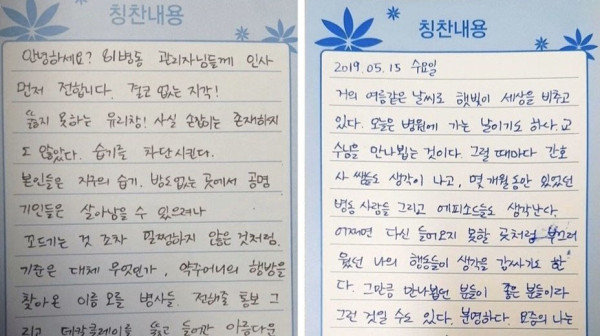 칭찬내용
안녕하세요? 81병동 관리자님들께 인사
먼저 전합니다. 결코 없는 지각!
뚫지 못하는 유리창! 사실 손잡이는 존재하지
도 않았다. 습기를 차단시킨다.
본인들은 지구의 습기, 방도없는 곳에서 공명
기인들은 살아남을 수 있으려나
꼬드기는 것 조차 필쩡하지 않은 것처럼.
기준은 대체 무엇인가, 약주머니의 행방을
찾아온 이름 모를 병사들. 전해줄 통보 그
리고 데칼클레이를 뚫고 들어간 아름다운
칭찬내용
2019.05.15 수요일
거의 여름같은 날씨로 햇빛이 세상을 비추고
있다. 오늘은 병원에 가는 날이기도 하다. 교
수님을 만나뵙는 것이다. 그럴 때마다 간호
사 쌤들도 생각이 나고, 몇 개월동안 있었던
병동 사람들 그리고 에피소드들도 생각난다.
어쩌면 다신 들어오지 못할 곳처럼 부끄러
웠던 나의 행동들이 생각을 감싸기도 한
다. 그만큼 만나뵀던 분들이 좋은 분들이라
그런 것일 수도 있다. 분명하다. 요즘의 나는